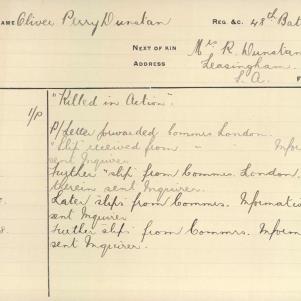 NAME Oliver Perry Dunstan REG &C. 48th Bat
NEXT OF KIN Mrs R Dunstan
ADDRESS Leasingham.
S.A.
"Killed in Action".
P/Letter forwarded Commrs London.
"slip" received from " Inform
sent Inquirer
Further "slip" from Commrs. London.
therein sent Inquirer.
Later slips from Commrs. Informati
sent Inquirer
8 Further slip from Commrs. Inform
sent Inquirer.